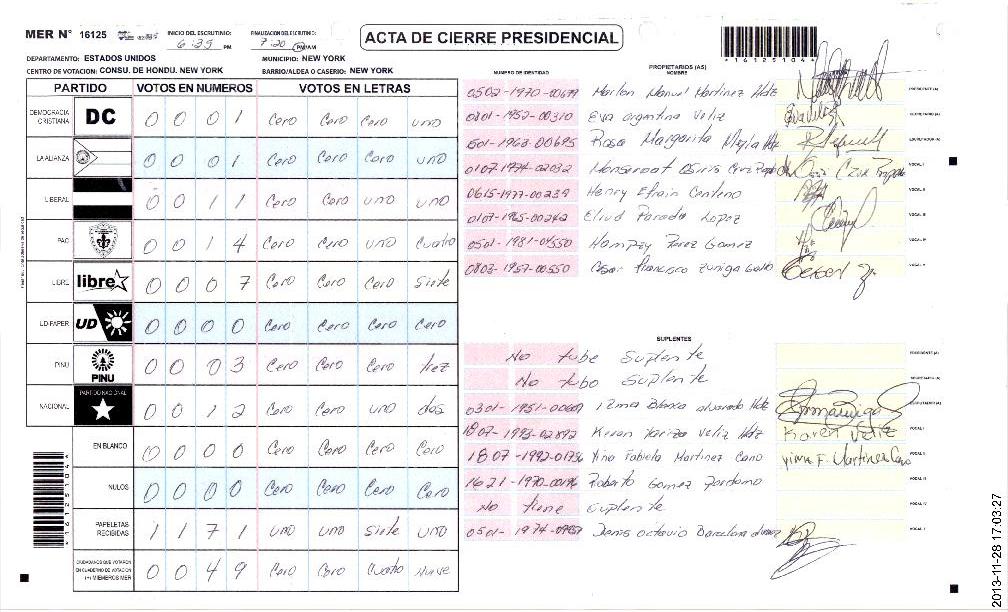 MER N° 16125 INICIO DEL ESCRUTINIO: 6:35 PM FINALIZACION DEL ESCRUTINIO: 7:20 PM/AM
ACTA DE CIERRE PRESIDENCIAL
16125104
DEPARTAMENTO: ESTADOS UNIDOS MUNICIPIO: NEW YORK
CENTRO DE VOTACION: CONSU. DE HONDU. NEW YORK BARRIO/ALDEA O CASERIO: NEW YORK
PARTIDO VOTOS EN NUMEROS VOTOS EN LETRAS
DEMOCRACIA CRISTIANA DC 0 0 0 1 Cero Cero Cero uno
LA ALIANZA 0 0 0 1 Cero Cero Cero uno
LIBERAL 0 0 1 1 Cero Cero uno uno
PAC 0 0 1 4 Cero Cero uno Cuatro
LIBRE libre 0 0 0 7 Cero Cero Cero Siete
UD-FAPER UD 0 0 0 0 Cero Cero Cero Cero
PINU PINU 0 0 0 3 Cero Cero Cero trez
NACIONAL PARTIDO NACIONAL 0 0 1 2 Cero Cero uno dos
EN BLANCO 0 0 0 0 Cero Cero Cero Cero
NULOS 0 0 0 0 Cero Cero Cero Cero
PAPELETAS RECIBIDAS 1 1 7 1 uno uno Siete uno
CIUDADANOS QUE VOTARON EN CUADERNO DE VOTACION (+) MIEMBROS MER 0 0 4 9 Cero Cero Cuatro Nueve
16125104
NUMERO DE IDENTIDAD PROPIETARIOS (AS) NOMBRE
0502-1970-00679 Marlon Manuel Martinez Hdz PRESIDENTE (A)
0801-1952-00310 Eva argentina Veliz SECRETARIO (A)
501-1963-00695 Rosa Margarita Mejia Hdz ESCRUTADOR (A)
0107-1974-02032 Monserrat Osiris Cruz VOCAL I
0615-1977-00239 Henry Efrain Centeno VOCAL II
0107-1965-00242 Eliud Parada Lopez VOCAL III
0501-1981-04550 Perez Gomez VOCAL IV
0803-1957-00550 Cesar francisco Zuniga VOCAL V
SUPLENTES
No tube Suplente PRESIDENTE (A)
No tubo Suplente SECRETARIO (A)
0301-1951-00609 Irma Blanca alvarado Hdz ESCRUTADOR (A)
1807-1993-02892 Keren Veliz Hdz Karen Veliz VOCAL I
1807-1992-01736 Fabiola Martinez Cano F. Martinez Cano VOCAL II
1621-1970-00196 Roberto Gomez Perdomo VOCAL III
No tiene Suplente VOCAL IV
0501-1974- Denis octavio Barcelona VOCAL V
2013-11-28 17:03:27